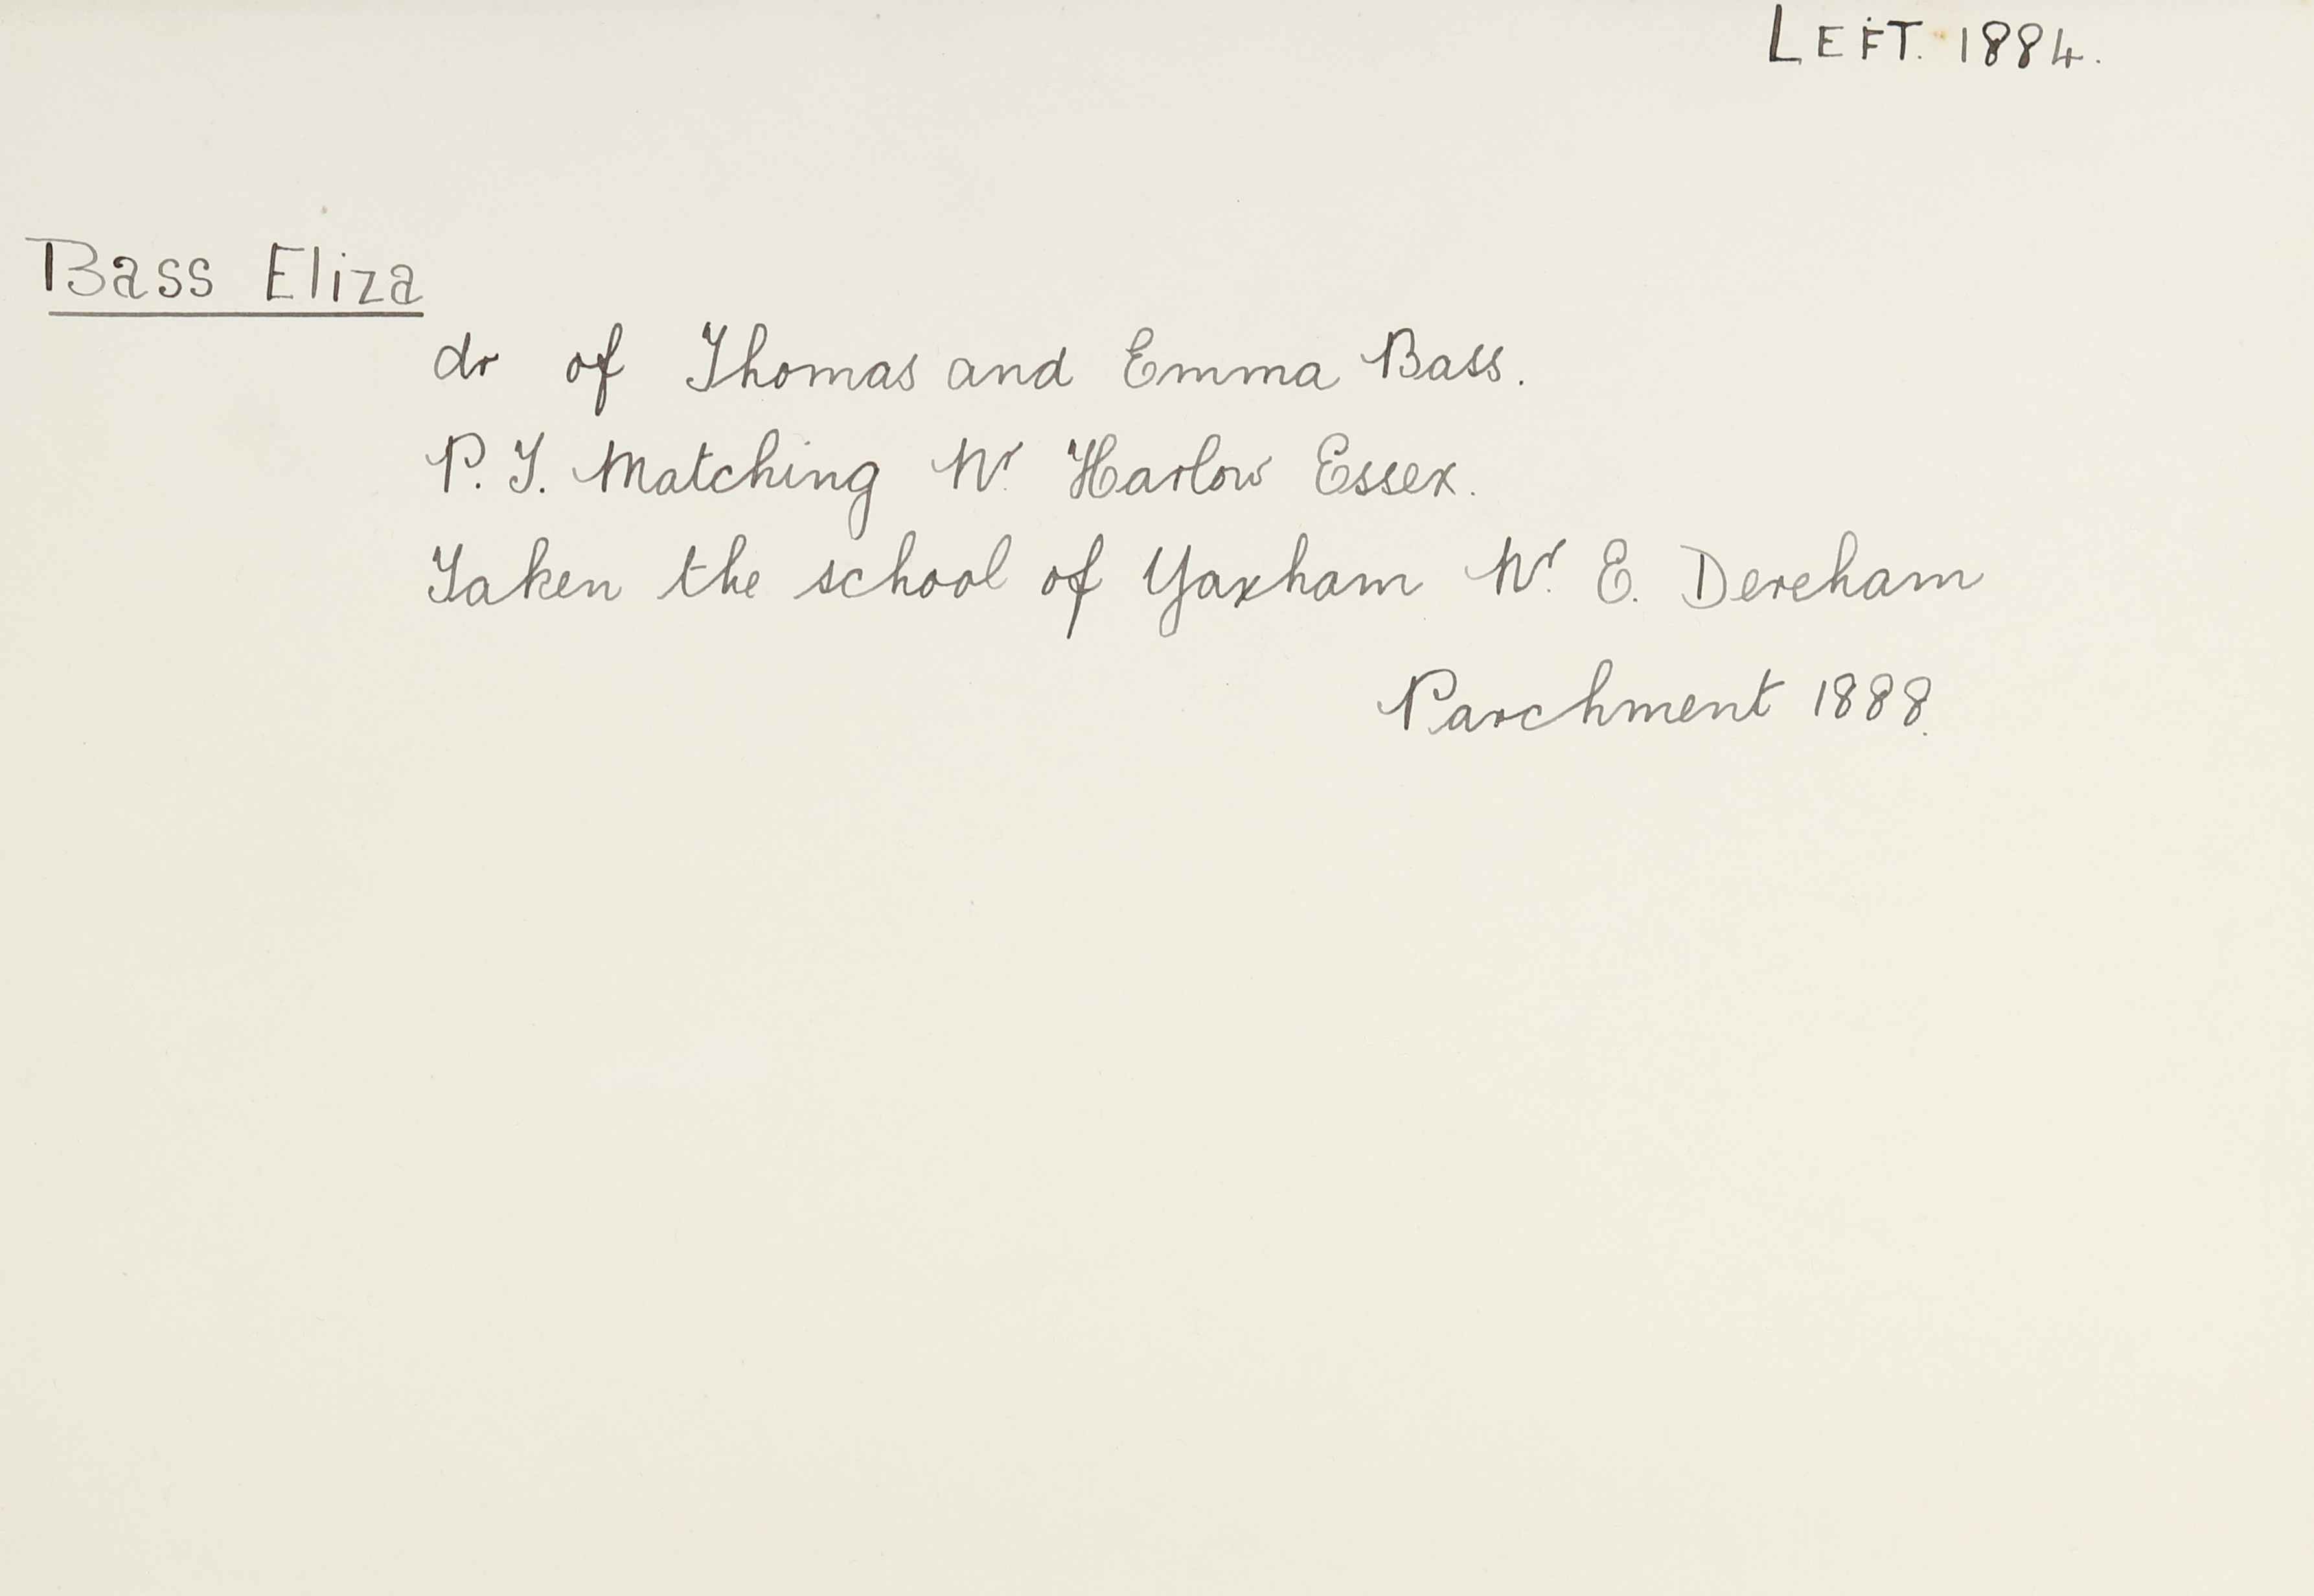 LEFT. 1884.
Bass Eliza
dr of Thomas and Emma Bass.
P. T. Matching Nr. Harlow Essex.
Taken the school of Yaxham Nr. E. Dereham
Parchment 1888.